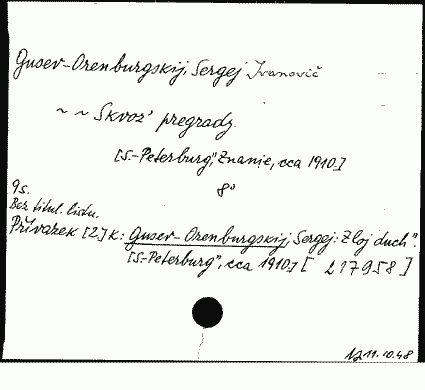 Gusev-Orenburgskij, Sergej Ivanovič
~ ~ Skvoz' pregrady.
[S.-Peterburg", Znanie, cca 1910.]
8°
9 s.
Bez titul. listu.
Přívazek [2] k: Gusev-Orenburgskij, Sergej: Zloj duch".
[S.-Peterburg", cca 1910.] [ 217958 ]
11.10.48